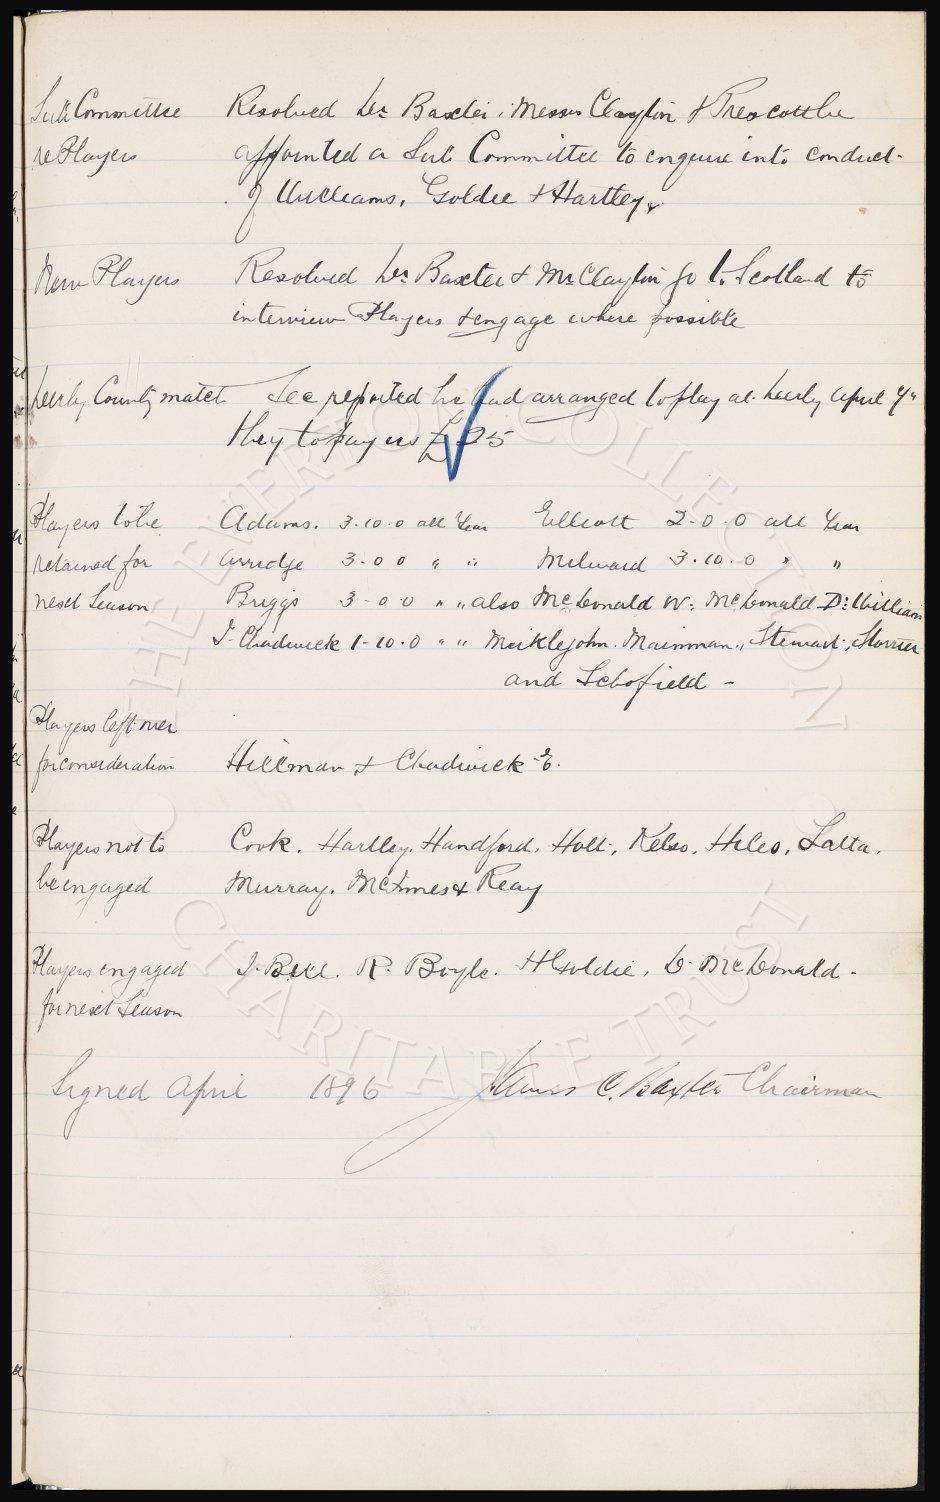 Sub Committee Resolved Dr Baxter, Messrs Clayton & Prescott be
re Players appointed a Sub Committee to enquire into conduct
of Williams, Goldie & Hartley.
New Players Resolved Dr Baxter & Mr Clayton go to Scotland to
interview Players & engage where possible
Derby County match Sec reported he had arranged to play at Derby April 4th
they to pay us £25
Players to be Adams. 3.10.0 all Year Elliott 2.0.0 all Year
retained for Arridge 3.0.0 " " Milward 3.10.0 " "
next Season Briggs 3.0.0 " " also McDonald W: McDonald D: William
J. Chadwick 1-10.0 " " Meiklejohn. Mainman, Stewart, Storrier
and Schofield -
Players left over
for consideration Hillman & Chadwick E.
Players not to Cook. Hartley. Handford. Holt, Kelso. Hiles. Latta.
be engaged Murray. McInnes & Reay
Players engaged J. Bell. R. Boyle. H Goldie. D. McDonald -
for next Season
Signed April 1896 James C. Baxter Chairman
THE EVERTON COLLECTION
CHARITABLE TRUST